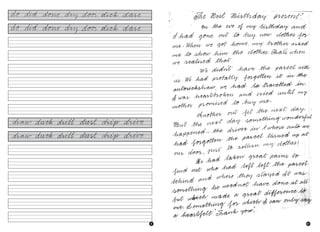 do did done dry door dick dare
do did done dry door dick dare
draw duck drill dust drip drive
draw duck drill dust drip drive
The Best Birthday present
On the eve of my birthday and
I had gone out to buy new clothes for
me. When we got home, my brother asked
me to show him the clothes. That's when
we realised that
We didn't have the parcel with
us. We had probably forgotten it in the
autorickshaw, we had travelled in.
I was heartbroken and cried until my
mother promised to buy me.
Another outfit the next day.
But the next day something wonderful
happened - the driver in whose auto we
had forgotten the parcel turned up at
our door, just to return my clothes!
He had taken great pains to
find out who had left the parcel
behind and where they stayed. It was
something he need not have done at all
but made a great difference to
me & something for which I can only say
a heartfelt Thank you.